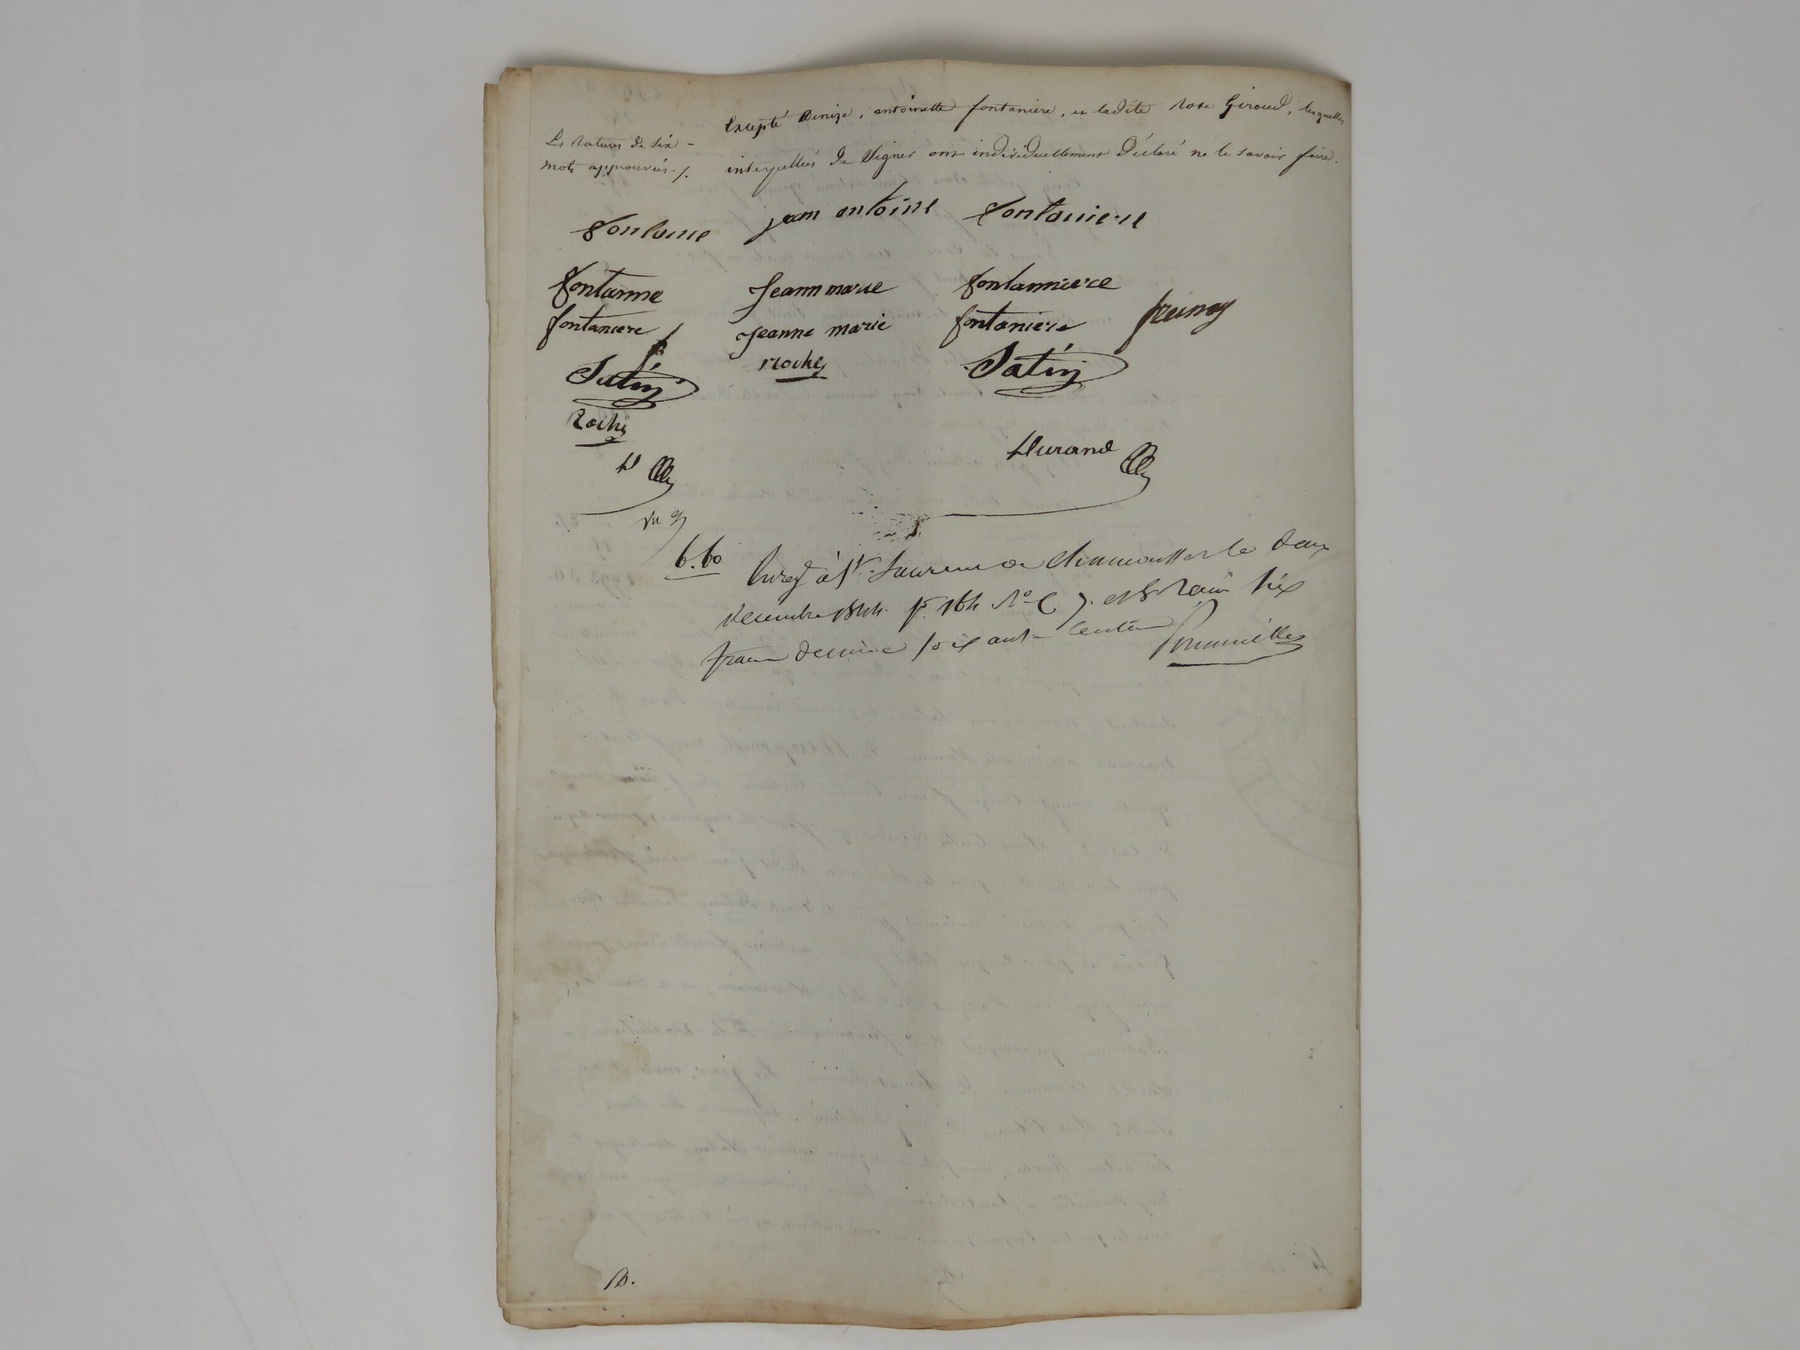 Excepté Denize, antoinette fontaniere, et ladite Rose Giroud, lesquelles
interpellées de Signer ont individuellement Déclaré ne le savoir faire.
Les Ratures de Six -
mots approuvées ./.
jean antoine fontaniere
fontanne Jeann marie fontannierce
fontaniere Jeanne marie fontaniere
Satin Roche Satin
Roche
D Durand
6.60 Enreg à St. Laurent de Chamousset le deux
décembre 1844. f° 164 R° C 7. et 8. Reçu Six
francs décime soixante centimes
D.